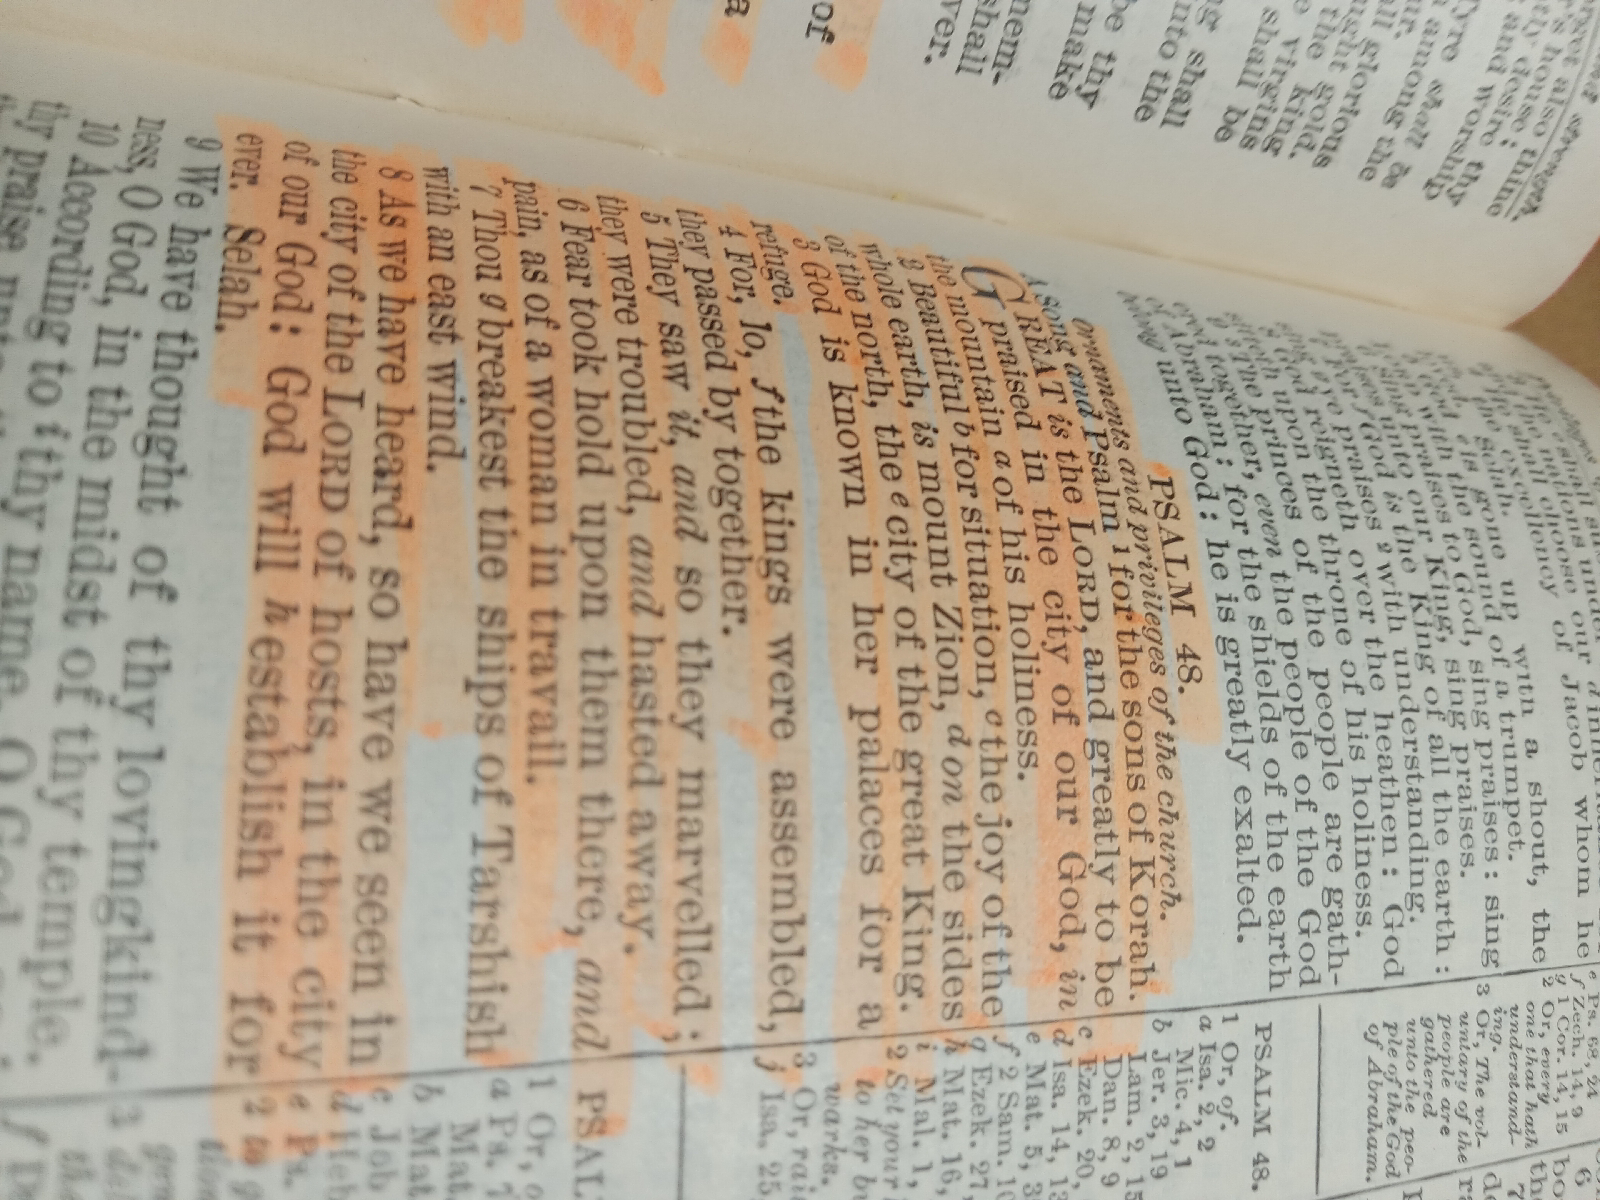 with a shout, the
of a trumpet.
sing praises: sing
sing praises.
King of all the earth:
with understanding.
reigneth over the heathen: God
upon the throne of his holiness.
princes of the people are gath-
together, even the people of the God
of Abraham: for the shields of the earth
belong unto God: he is greatly exalted.
PSALM 48.
ornaments and privileges of the church.
A song and Psalm 1 for the sons of Korah.
GREAT is the LORD, and greatly to be
praised in the city of our God, in
the mountain a of his holiness.
2 Beautiful b for situation, c the joy of the
whole earth, is mount Zion, d on the sides
of the north, the e city of the great King.
3 God is known in her palaces for a
refuge.
4 For, lo, f the kings were assembled,
they passed by together.
5 They saw it, and so they marvelled;
they were troubled, and hasted away.
6 Fear took hold upon them there, and
pain, as of a woman in travail.
7 Thou g breakest the ships of Tarshish
with an east wind.
8 As we have heard, so have we seen in
the city of the LORD of hosts, in the city
of our God: God will h establish it for
ever. Selah.
9 We have thought of thy lovingkind-
ness, O God, in the midst of thy temple.
10 According to i thy name, O God,
thy praise unto
3 Or, The vol-
untary of the
people are
gathered
unto the peo-
ple of the God
of Abraham.
PSALM 48.
1 Or, of.
a Isa. 2, 2
Mic. 4, 1
b Jer. 3, 19
Lam. 2, 15
Dan. 8, 9
c Ezek. 20,
d Isa. 14, 13
e Mat. 5, 3
f 2 Sam. 10
g Ezek. 27,
h Mat. 16,
i Mal. 1,
2 Set your
to her bu
warks.
3 Or, rai
j Isa. 25
PSAL
1 Or, o
a Ps. 7
Mat.
b Mat
c Job
d Heb
e Ps.
of
a
nem-
shall
ver.
be thy
make
ng shall
nto the
virgins
shall be
glorious
the gold.
the king.
Tyre shall be
among the
thy worship